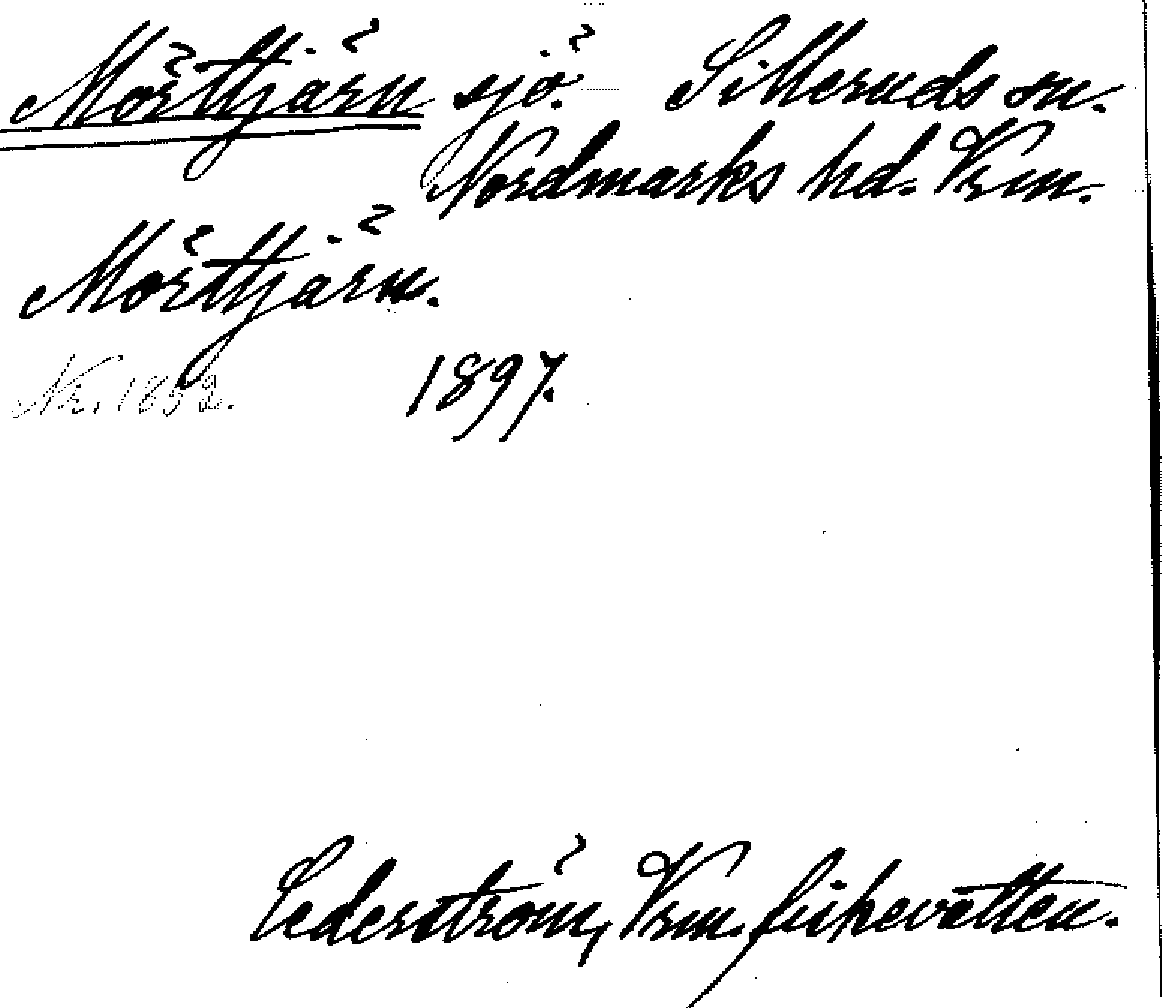 Mörttjärn sjö. Silleruds sn.
Nordmarks hd. Vrm.
Mörttjärn.
Nr. 1852. 1897.
Cederström, Vrm. fiskevatten.